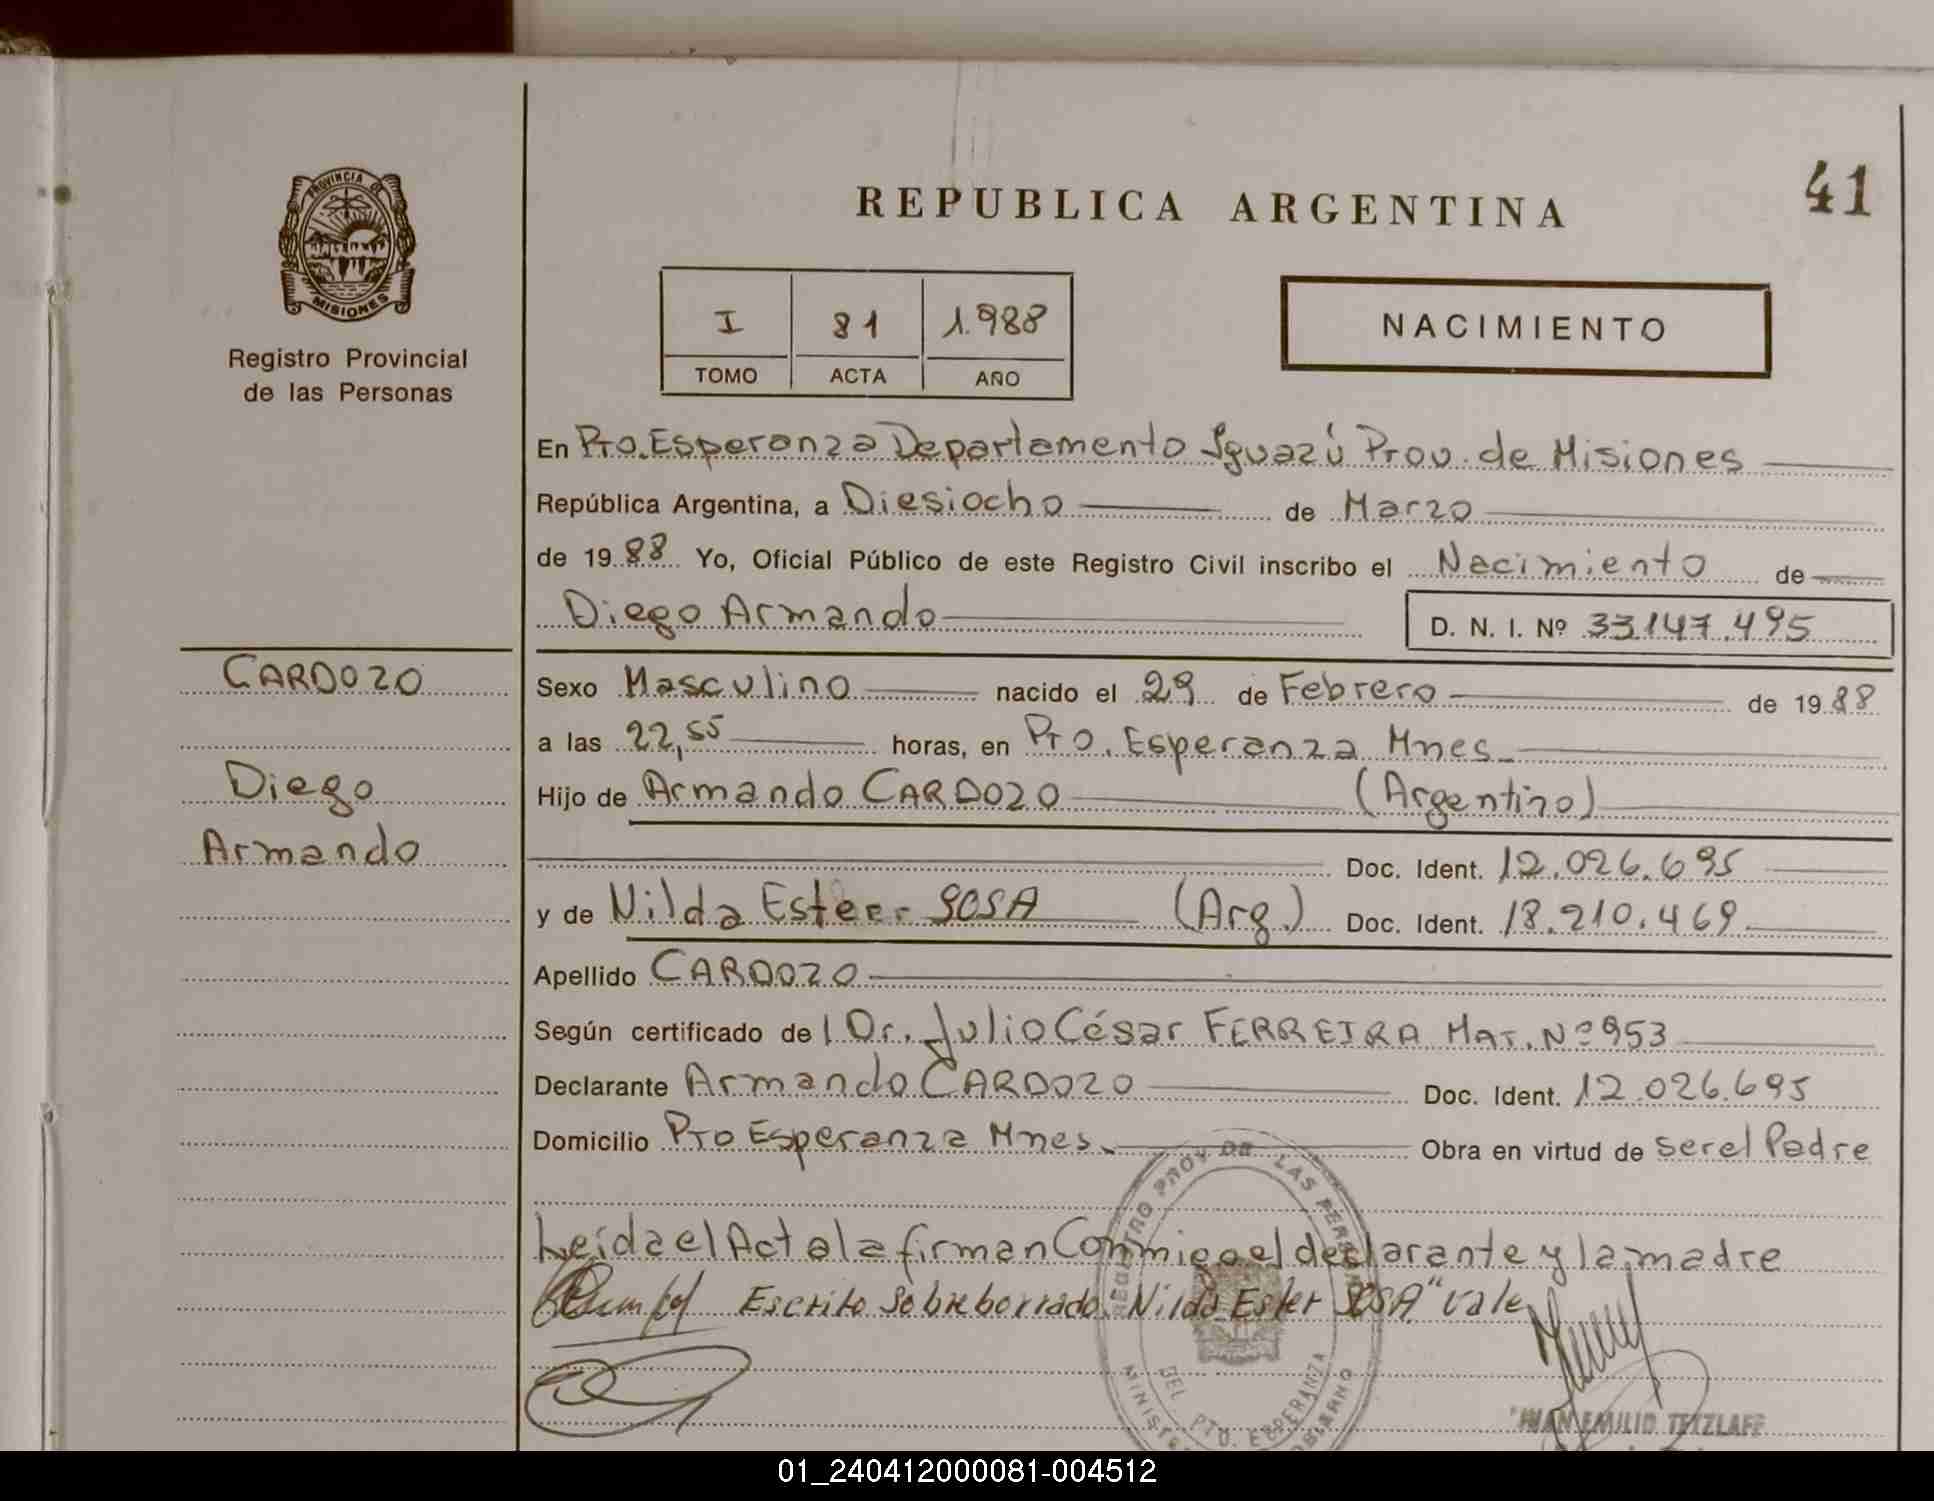 41
REPUBLICA ARGENTINA
PROVINCIA DE
MISIONES
Registro Provincial
de las Personas
I 81 1.988
TOMO ACTA AÑO
NACIMIENTO
En Pto. Esperanza Departamento Iguazú Prov. de Misiones
República Argentina, a Diesiocho de Marzo
de 1988 Yo, Oficial Público de este Registro Civil inscribo el Nacimiento de
Diego Armando D. N. I. Nº 33.147.495
CARDOZO
Diego
Armando
Sexo Masculino nacido el 29 de Febrero de 1988
a las 22,55 horas, en Pto. Esperanza Mnes.
Hijo de Armando CARDOZO (Argentino)
Doc. Ident. 12.026.695
y de Nilda Ester SOSA (Arg.) Doc. Ident. 18.210.469
Apellido CARDOZO
Según certificado del Dr. Julio César FERREIRA Mat. Nº 953
Declarante Armando CARDOZO Doc. Ident. 12.026.695
Domicilio Pto Esperanza Mnes. Obra en virtud de ser el Padre
Leída el Acta la firman Conmigo el declarante y la madre
Escrito sobreborrado: "Nilda Ester SOSA" vale
REGISTRO PROV. DE LAS PERS
DEL PTO. ESPERANZA
JUAN EMILIO TETZLAFF
01_240412000081-004512